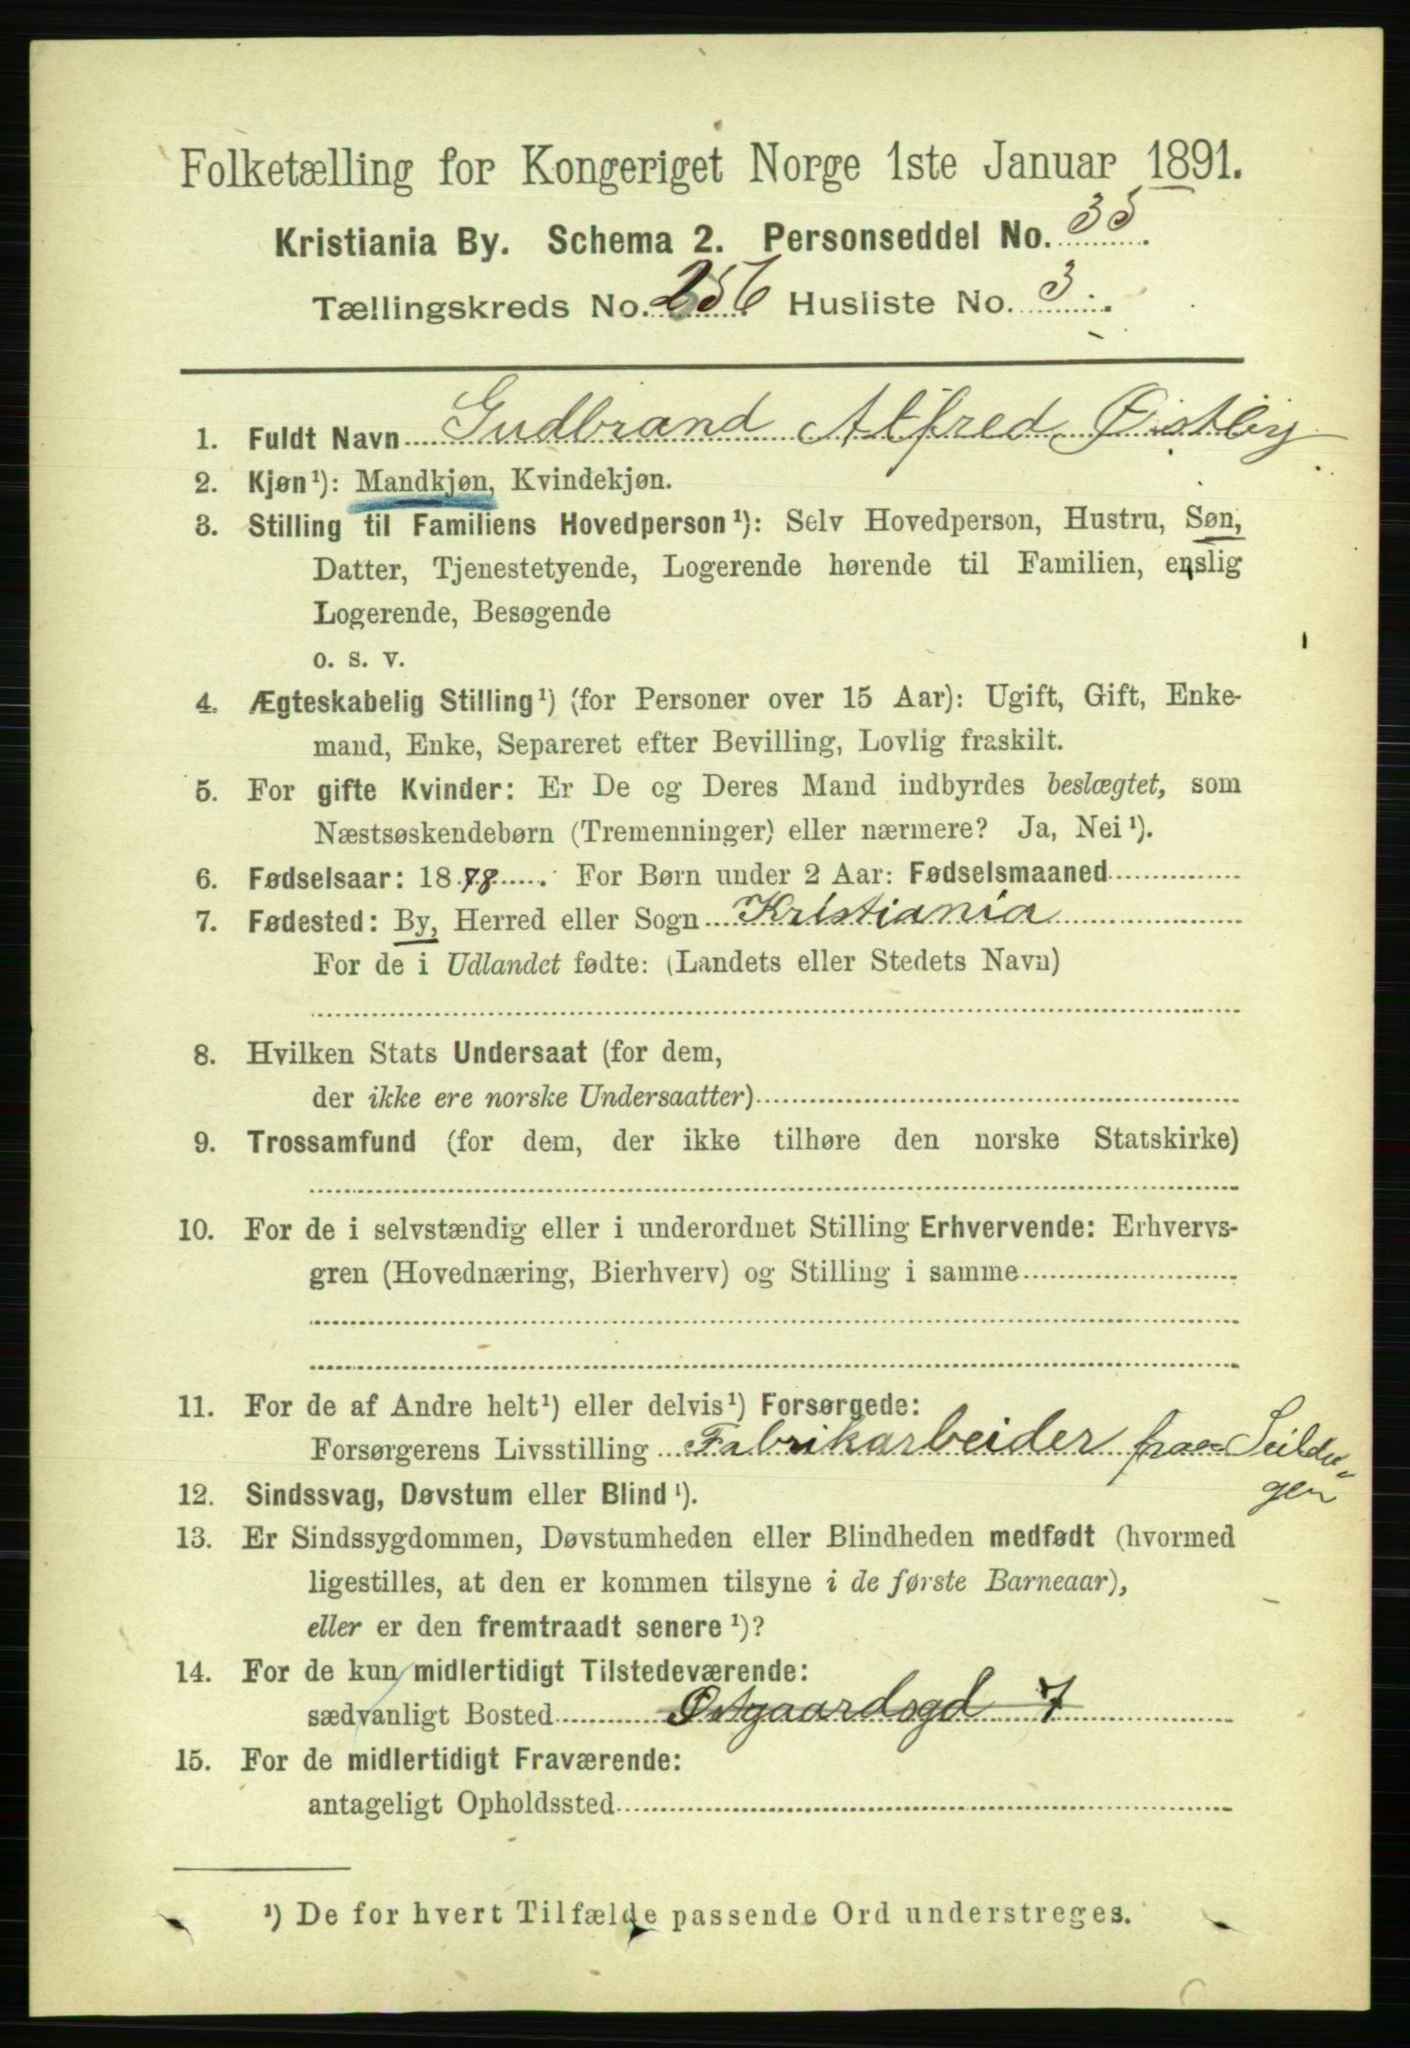 Folketælling for Kongeriget Norge 1ste Januar 1891.
Kristiania By. Schema 2. Personseddel No. 35.
Tællingskreds No. 256 Husliste No. 3.
1. Fuldt Navn Gudbrand Alfred Østby
2. Kjøn¹): Mandkjøn, Kvindekjøn.
3. Stilling til Familiens Hovedperson¹): Selv Hovedperson, Hustru, Søn,
Datter, Tjenestetyende, Logerende hørende til Familien, enslig
Logerende, Besøgende
o. s. v.
4. Ægteskabelig Stilling¹) (for Personer over 15 Aar): Ugift, Gift, Enke-
mand, Enke, Separeret efter Bevilling, Lovlig fraskilt.
5. For gifte Kvinder: Er De og Deres Mand indbyrdes beslægtet, som
Næstsøskendebørn (Tremenninger) eller nærmere? Ja, Nei¹).
6. Fødselsaar: 1878. For Børn under 2 Aar: Fødselsmaaned
7. Fødested: By, Herred eller Sogn Kristiania
For de i Udlandet fødte: (Landets eller Stedets Navn)
8. Hvilken Stats Undersaat (for dem,
der ikke ere norske Undersaatter)
9. Trossamfund (for dem, der ikke tilhøre den norske Statskirke)
10. For de i selvstændig eller i underordnet Stilling Erhvervende: Erhvervs-
gren (Hovednæring, Bierhverv) og Stilling i samme
11. For de af Andre helt¹) eller delvis¹) Forsørgede:
Forsørgerens Livsstilling Fabrikarbeider paa Seildu-
gen
12. Sindssvag, Døvstum eller Blind¹).
13. Er Sindssygdommen, Døvstumheden eller Blindheden medfødt (hvormed
ligestilles, at den er kommen tilsyne i de første Barneaar),
eller er den fremtraadt senere¹)?
14. For de kun midlertidigt Tilstedeværende:
sædvanligt Bosted Østgaardsgd 7
15. For de midlertidigt Fraværende:
antageligt Opholdssted
¹) De for hvert Tilfælde passende Ord understreges.